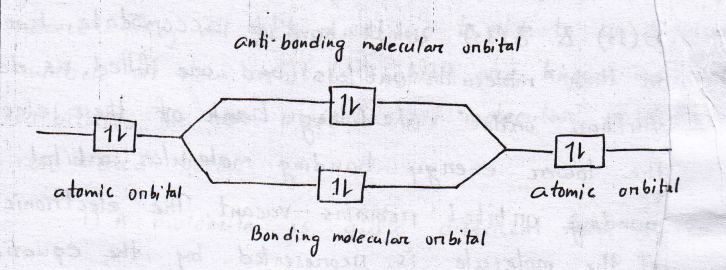 anti-bonding molecular orbital
1l 1l 1l
atomic orbital atomic orbital
1l
Bonding molecular orbital